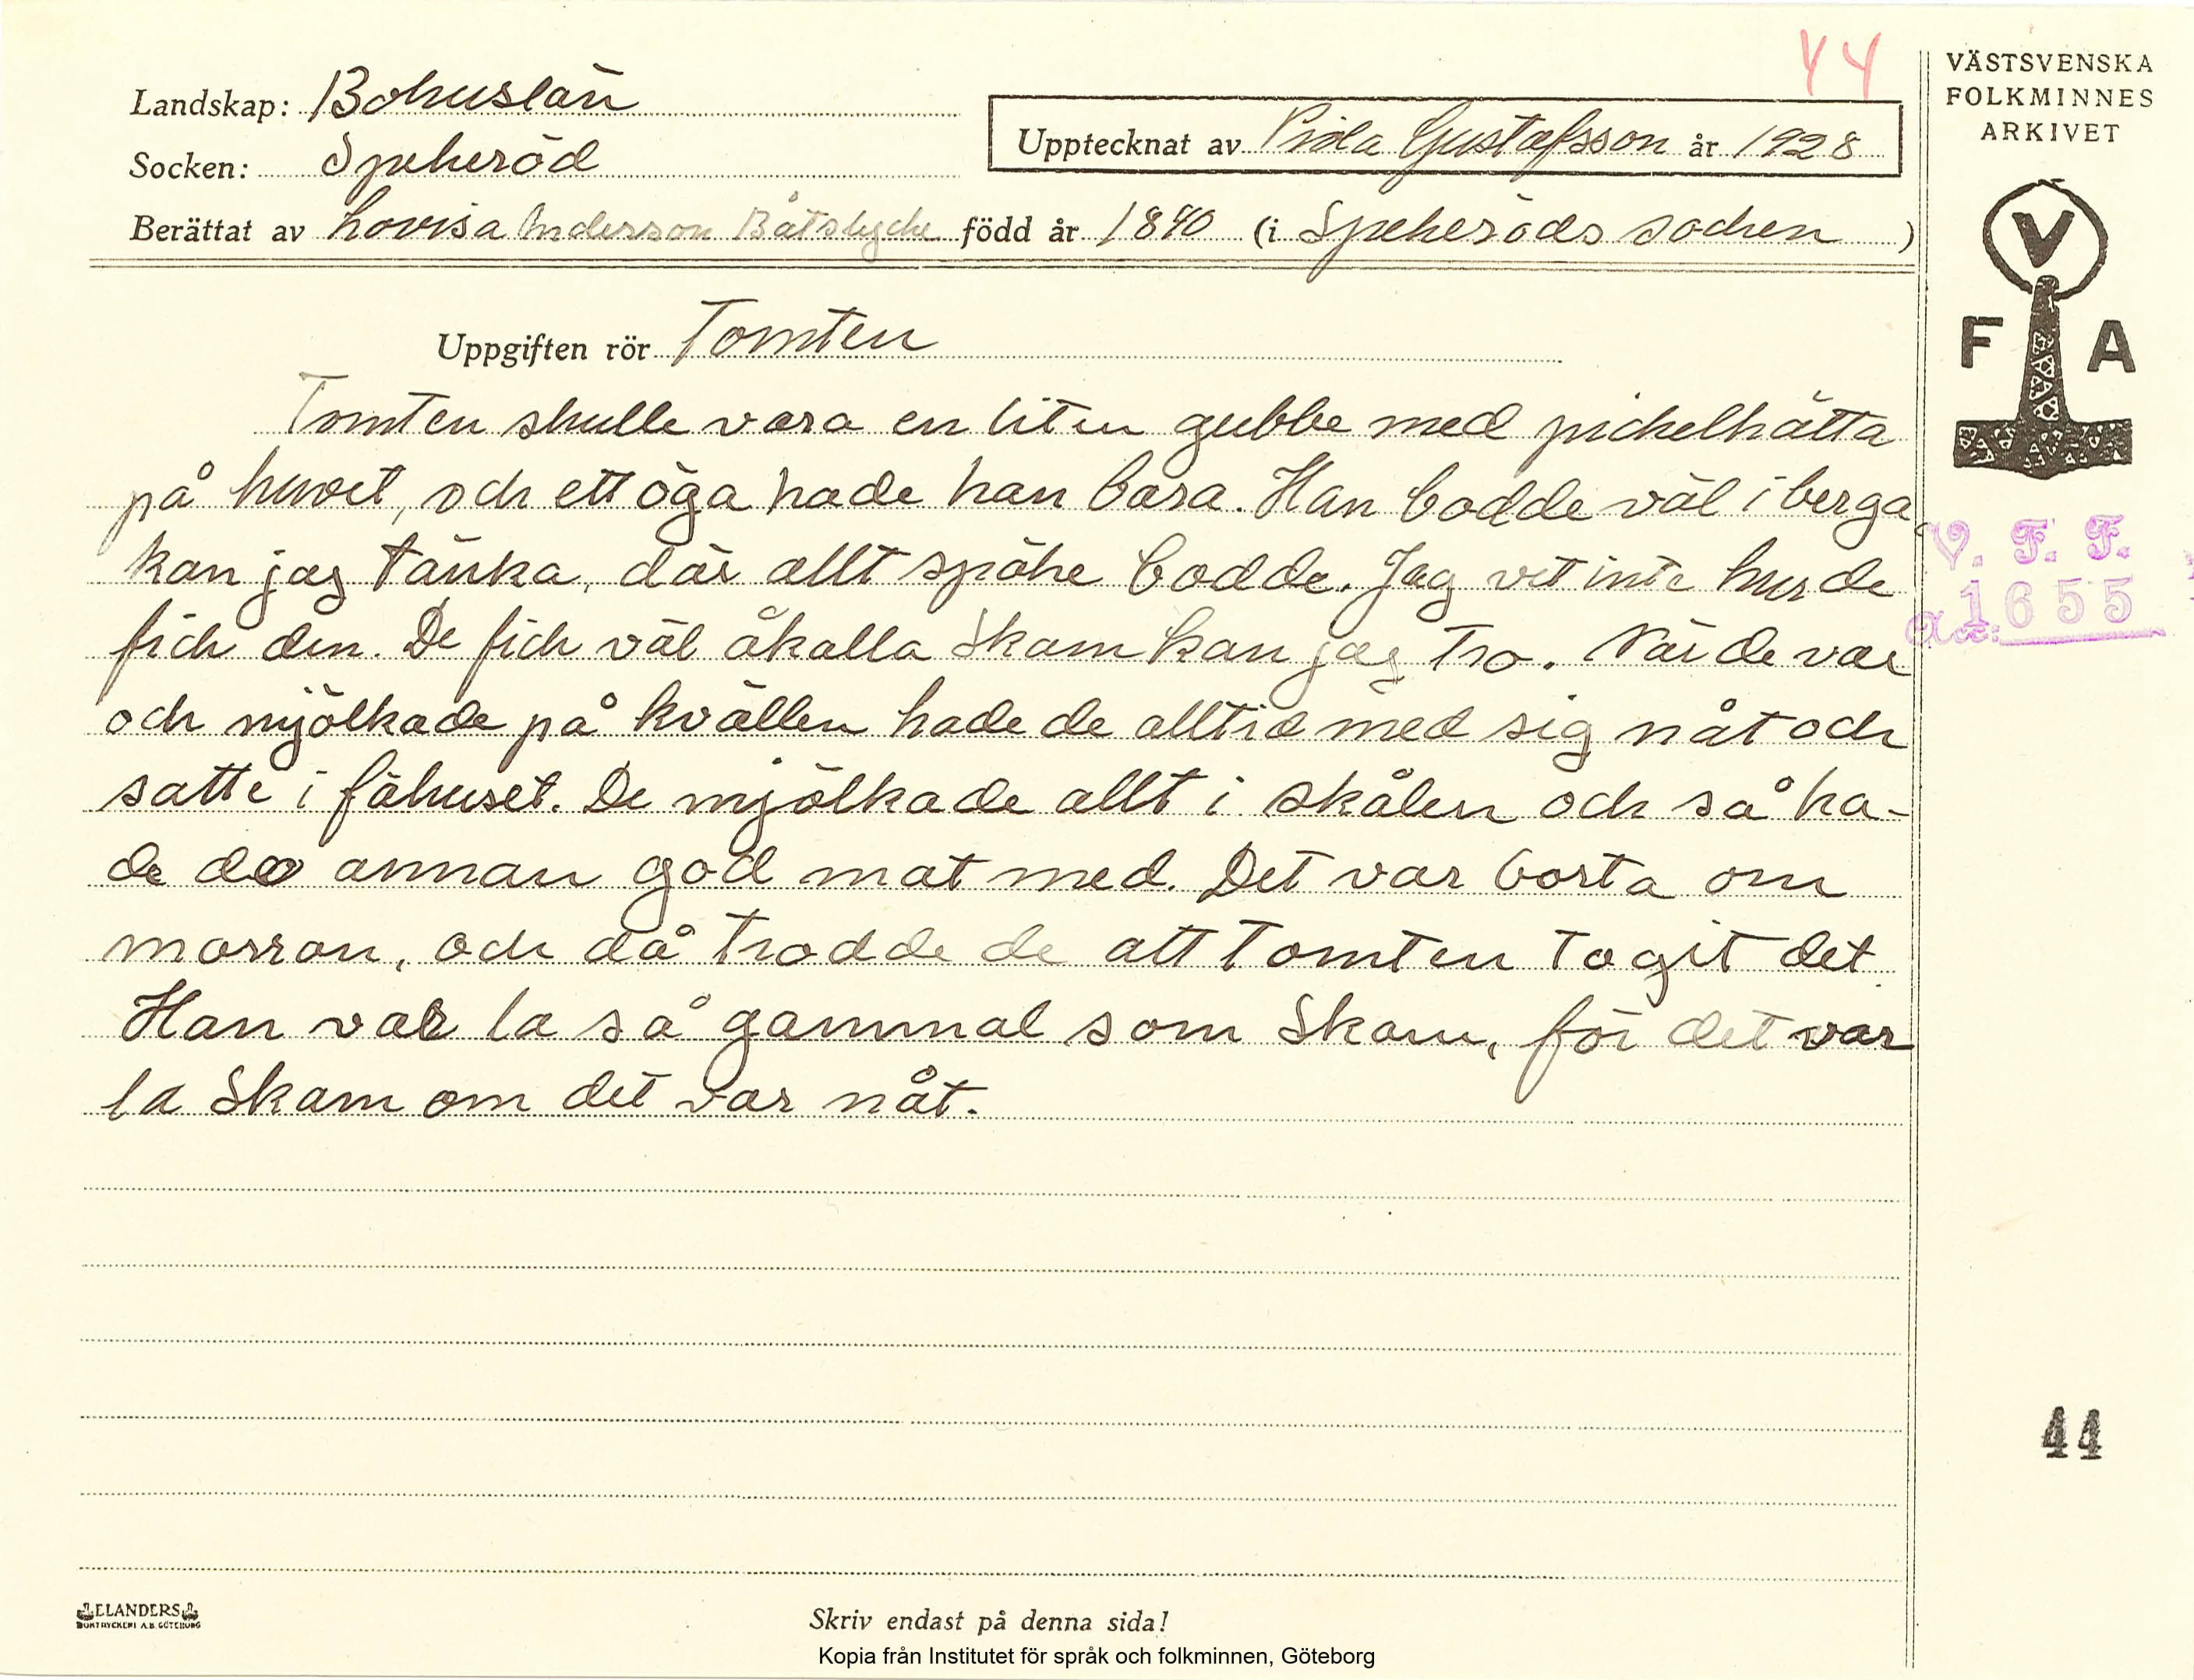 44
VÄSTSVENSKA
FOLKMINNES
ARKIVET
Landskap: Bohuslän
Socken: Spekeröd
Upptecknat av Viola Gustafsson år 1928
Berättat av Lovisa Anderson Båtslycke född år 1840 (i Spekeröds socken)
V
F A
Uppgiften rör Tomten
Tomten skulle vara en liten gubbe med pickelhätta
på huvet, och ett öga hade han bara. Han bodde väl i berga
kan jag tänka, där allt spöke bodde. Jag vet inte hur de
fick den. De fick väl åkalla Skam kan jag tro. När de var
och mjölkade på kvällen hade de alltid med sig nåt och
satte i fähuset. De mjölkade allt i skålen och så ha-
de de annan god mat med. Det var borta om
morron, och då trodde de att tomten tagit det.
Han var la så gammal som Skam, för det var
la Skam om det var nåt.
V. F. F.
Acc: 1655
44
ELANDERS
BOKTRYCKERI A.B. GÖTEBORG
Skriv endast på denna sida!
Kopia från Institutet för språk och folkminnen, Göteborg